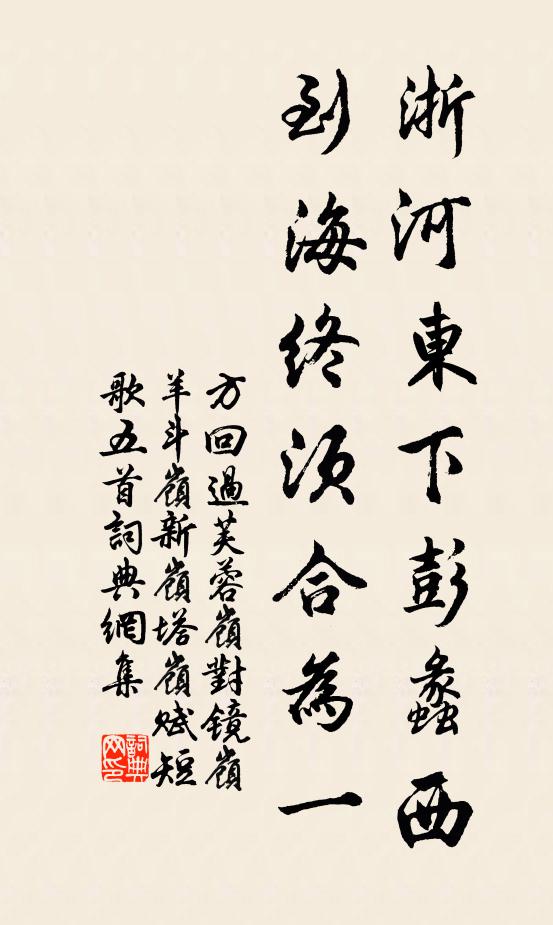 浙河東下彭蠡西
到海終須合為一
方回過芙蓉嶺對鏡嶺
羊斗嶺新嶺塔嶺賦短
歌五首詞典網集
詞典
网印